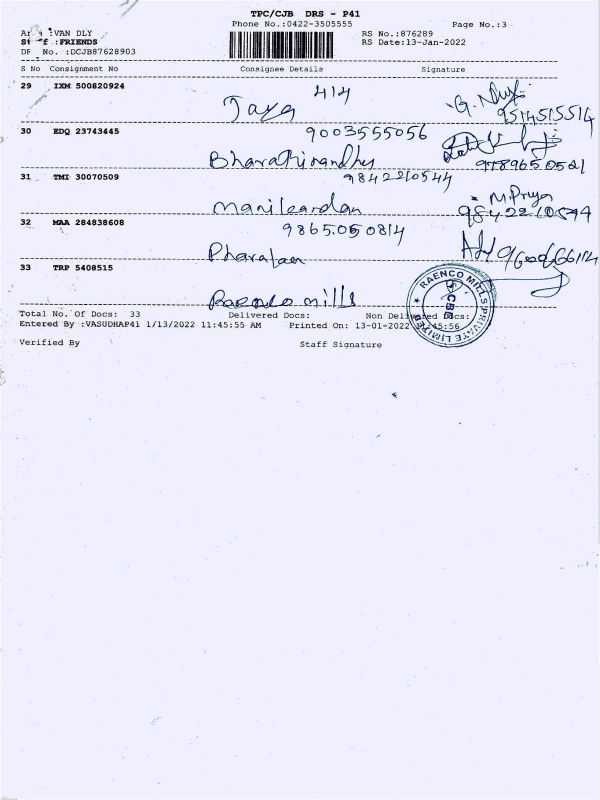 TPC/CJB DRS - P41
Phone No.:0422-3505555 Page No.:3
:VAN DLY RS No.:876289
:FRIENDS RS Date:13-Jan-2022
No. :DCJB87628903
S No Consignment No Consignee Details Signature
29 IXM 500820924 414
Jaya 9514515514
30 EDQ 23743445 9003555056
31 TMI 30070509 9842210544
Manikandan M Priya
32 MAA 284838608 9865050814
33 TRP 5408515
Raenco mills
RAENCO MILLS PRIVATE LIMITED
CBE
Total No. Of Docs: 33 Delivered Docs: Non Delivered Docs:
Entered By :VASUDHAP41 1/13/2022 11:45:55 AM Printed On: 13-01-2022 11:45:56
Verified By Staff Signature